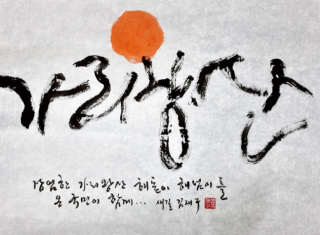 가리왕산
장엄한 가리왕산 해돋이 해넘이를
온 국민이 함께... 새길 김재구